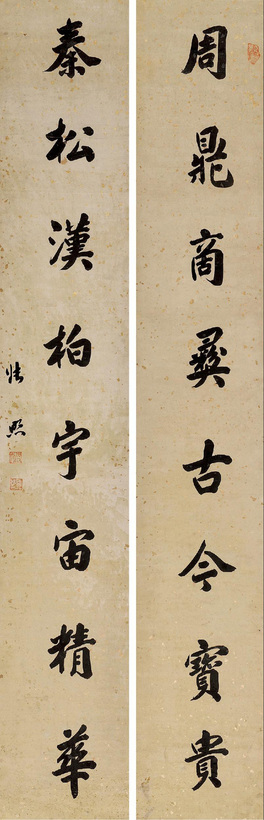 周鼎商彝古今寶貴
秦松漢柏宇宙精華
張照